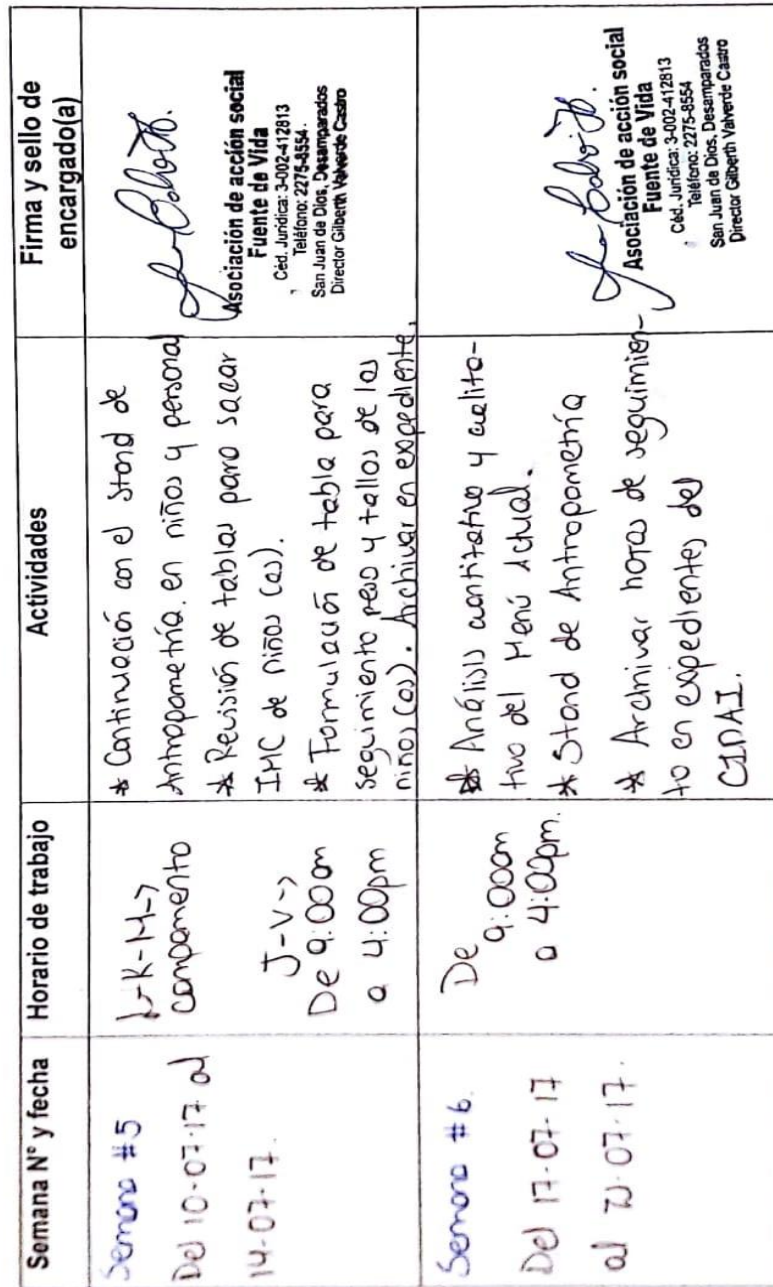 Semana N° y fecha
Horario de trabajo
Actividades
Firma y sello de
encargado(a)
Semana #5
Del 10-07-17 al
14-07-17.
L-K-M->
campamento
J-V->
De 9:00am
a 4:00pm
* Continuación con el stand de
Antropometría en niños y personal
* Revisión de tablas para sacar
IMC de niños (as).
* Formulación de tabla para
seguimiento peso y tallas de los
niños (as). Archivar en expediente.
Asociación de acción social
Fuente de Vida
Céd. Jurídica: 3-002-412813
Teléfono: 2275-8554.
San Juan de Dios, Desamparados
Director Gilberth Valverde Castro
Semana #6.
Del 17-07-17
al 21-07-17.
De
9:00am
a 4:00pm.
* Análisis cuantitativo y cualita-
tivo del Menú Actual.
* Stand de Antropometría
* Archivar horas de seguimien-
to en expedientes del
CIDAI.
Asociación de acción social
Fuente de Vida
Céd. Jurídica: 3-002-412813
Teléfono: 2275-8554
San Juan de Dios, Desamparados
Director Gilberth Valverde Castro